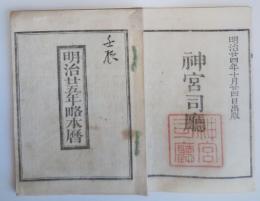 明治廿四年十月廿四日出版
神宮司廳
神宮司廳
壬辰
明治廿五年略本暦